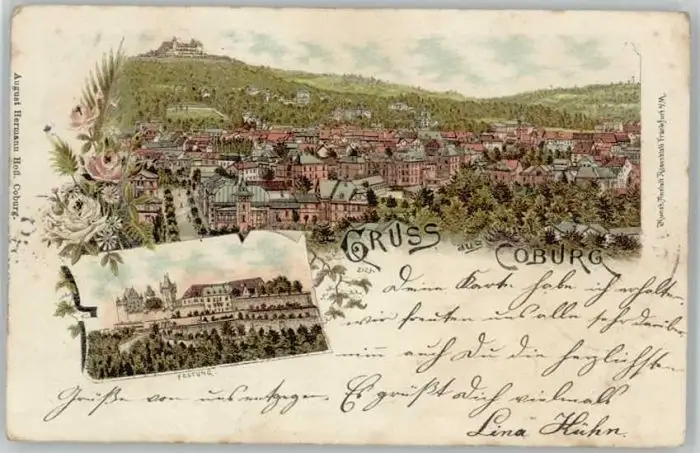 August Hermann Hofl. Coburg.
Kunst-Anstalt Rosenblatt Frankfurt a/M.
GRUSS aus COBURG
FESTUNG
Deine Karte habe ich erhalten
wir freuten uns alle sehr darüber
nimm auch Du die herzlichsten
Grüße von uns entgegen. Es grüßt Dich vielmals
Lina Hühn.